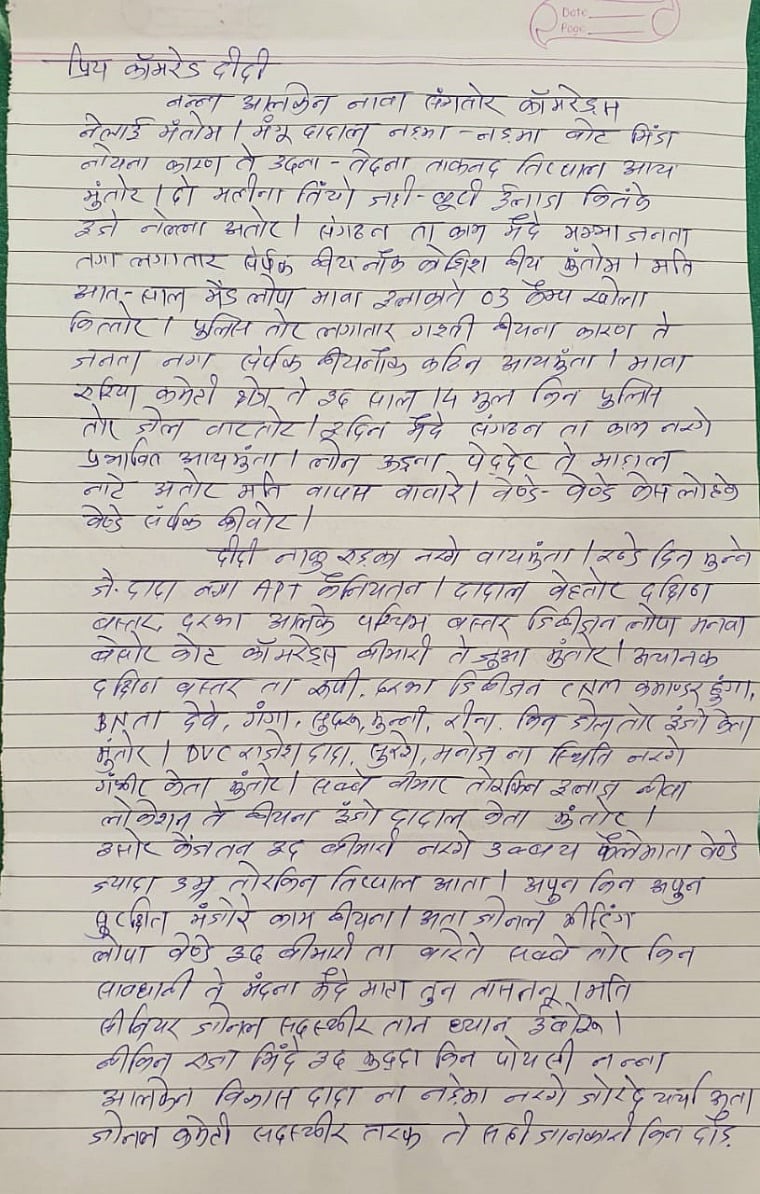 Date
Page
प्रिय कॉमरेड दीदी
नन्न आलकेन नावा संगतोर कॉमरेड्स
नेलाई मंतोम। मंयू दादाल नड़मा-नड़मा बोट मिंडा
नोयना कारण ते उदना-तेदना ताकनद तिप्पाल आय
मुंतोर। दो मलीना तियो जड़ी-बूटी ईलाज कितेके
इंजे नेल्ला अतोर। संगठन ता काम मैंदे मम्मा जनता
नगा लगातार संर्पक कीयनॉक कोशिश कीय मुंतोम। मति
आत-साल मैड लोपा मावा इलाकाते 03 कैम्प खोला
कित्तोर। पुलिस तोर लगातार गश्ती कीयना कारण ते
जनता नगा संर्पक कीयनॉक कठिन आयमुंता। मावा
एरिया कमेटी क्षेत्र ते इद साल 14 मुल किन पुलिस
तोर जेल वाटतोर। इदिन मैंदे संगठन ता काम नरगे
प्रभावित आयमुंता। लोन कड़ना पेद्देट ते माड़ाल
नाटे अतोर मति वापस वावारे। वेण्डे-वेण्डे केस लोहके
वेण्डे संर्पक कीवोर।
दीदी नाकु एड़का नरगे वायमुंता। रण्डे दिन मुन्ने
जे. दादा नगा APT कैनियतन। दादाल वेहतोर दक्षिण
बस्तर, दरभा आलके पश्चिम बस्तर डिवीजन लोपा मनवा
बेसोर कोट कॉमरेड्स बीमारी ते जुआ मुंतोर। अचानक
दक्षिण बस्तर ता रूपी, दरभा डिवीजन CNM कमाण्डर हुंगा,
BNता देवे, गंगा, सुदरू, मुन्नी, रीना, किन डोलतोर इंजो केता
मुंतोर। DVC राजेश दादा, सुरगे, मनोज ना स्थिति नरगे
गंभीर केता मुंतोर। सब्बे बीमार तोरकिन इलाज कीवा
लोकेशन ते कीयना इंजो दादाल केता मुंतोर।
इसोर कैंजतन इद बीमारी नरगे उब्बय फैलेमाता वेण्डे
ज्यादा उम्र तोरकिन तिप्पाल आता। अपुन किन अपुन
सुरक्षित मंजोरे काम कीयना। अता जोनल मीटिंग
लोपा वेण्डे इद बीमारी ता बारेते सब्बे तोर किन
सावधानी ते मंदना मैंदे माटा तुन तासतनू। मति
सीनियर जोनल सदस्यीर तान ध्यान ईवोरू।
बीकिन एजा मिंदे इद कुद्दा किन पोयसी नन्ना
आलकेन विकास दादा ना नड़ेका नरगे जोरदे चर्चा अता।
जोनल कमेटी सदस्यीर तरफ ते सही जानकारी किन दौड़